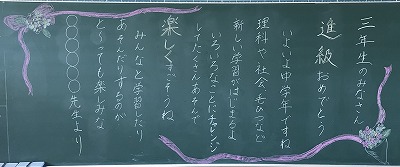 三年生のみなさん
進級おめでとう
いよいよ中学年ですね
理科や社会、毛ひつなど
新しい学習がはじまるよ
いろいろなことにチャレンジ
してたくさんあそんで
楽しくすごそうね
みんなと学習したり
あそんだりするのが
とっても楽しみな
〇〇〇〇〇先生より